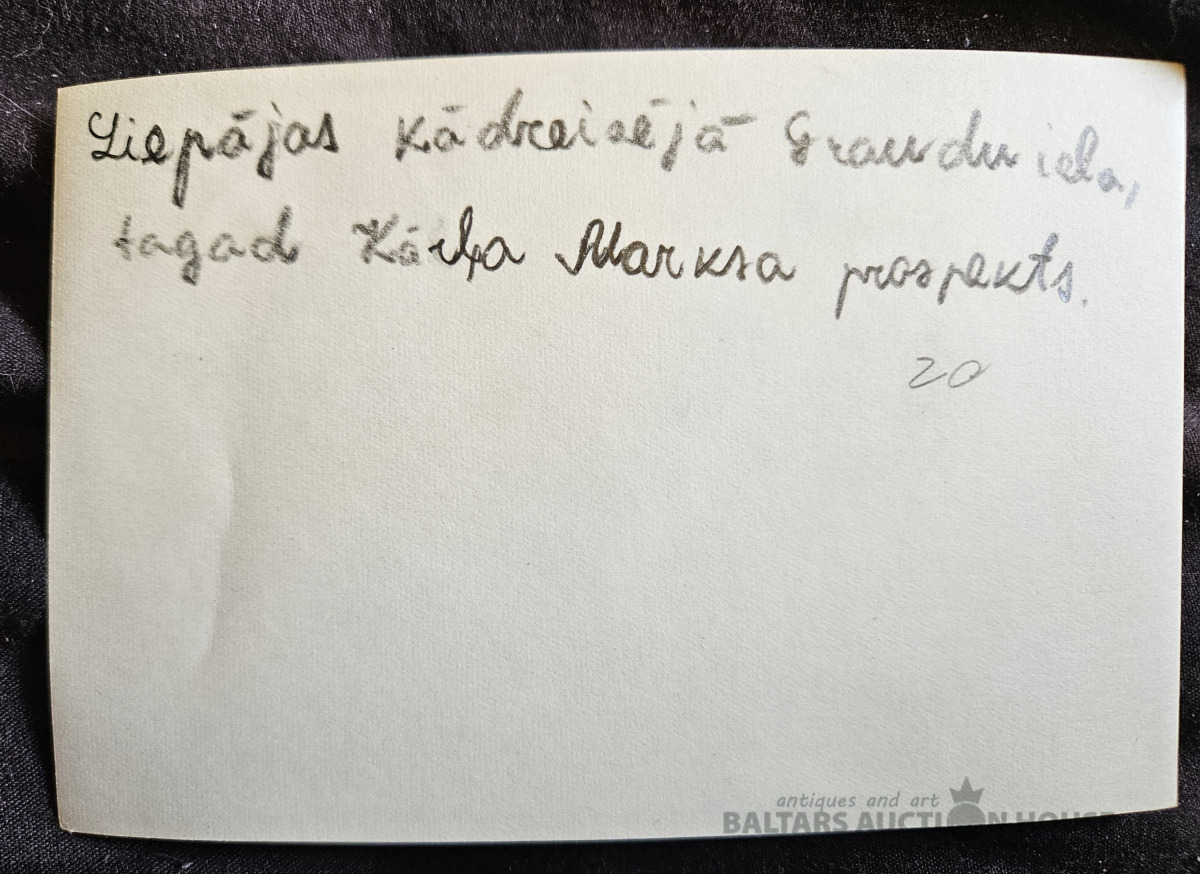 Liepājas kādreizējā Graudu iela,
tagad Kārļa Marksa prospekts.
20
antiques and art
BALTARS AUCTION HOUSE